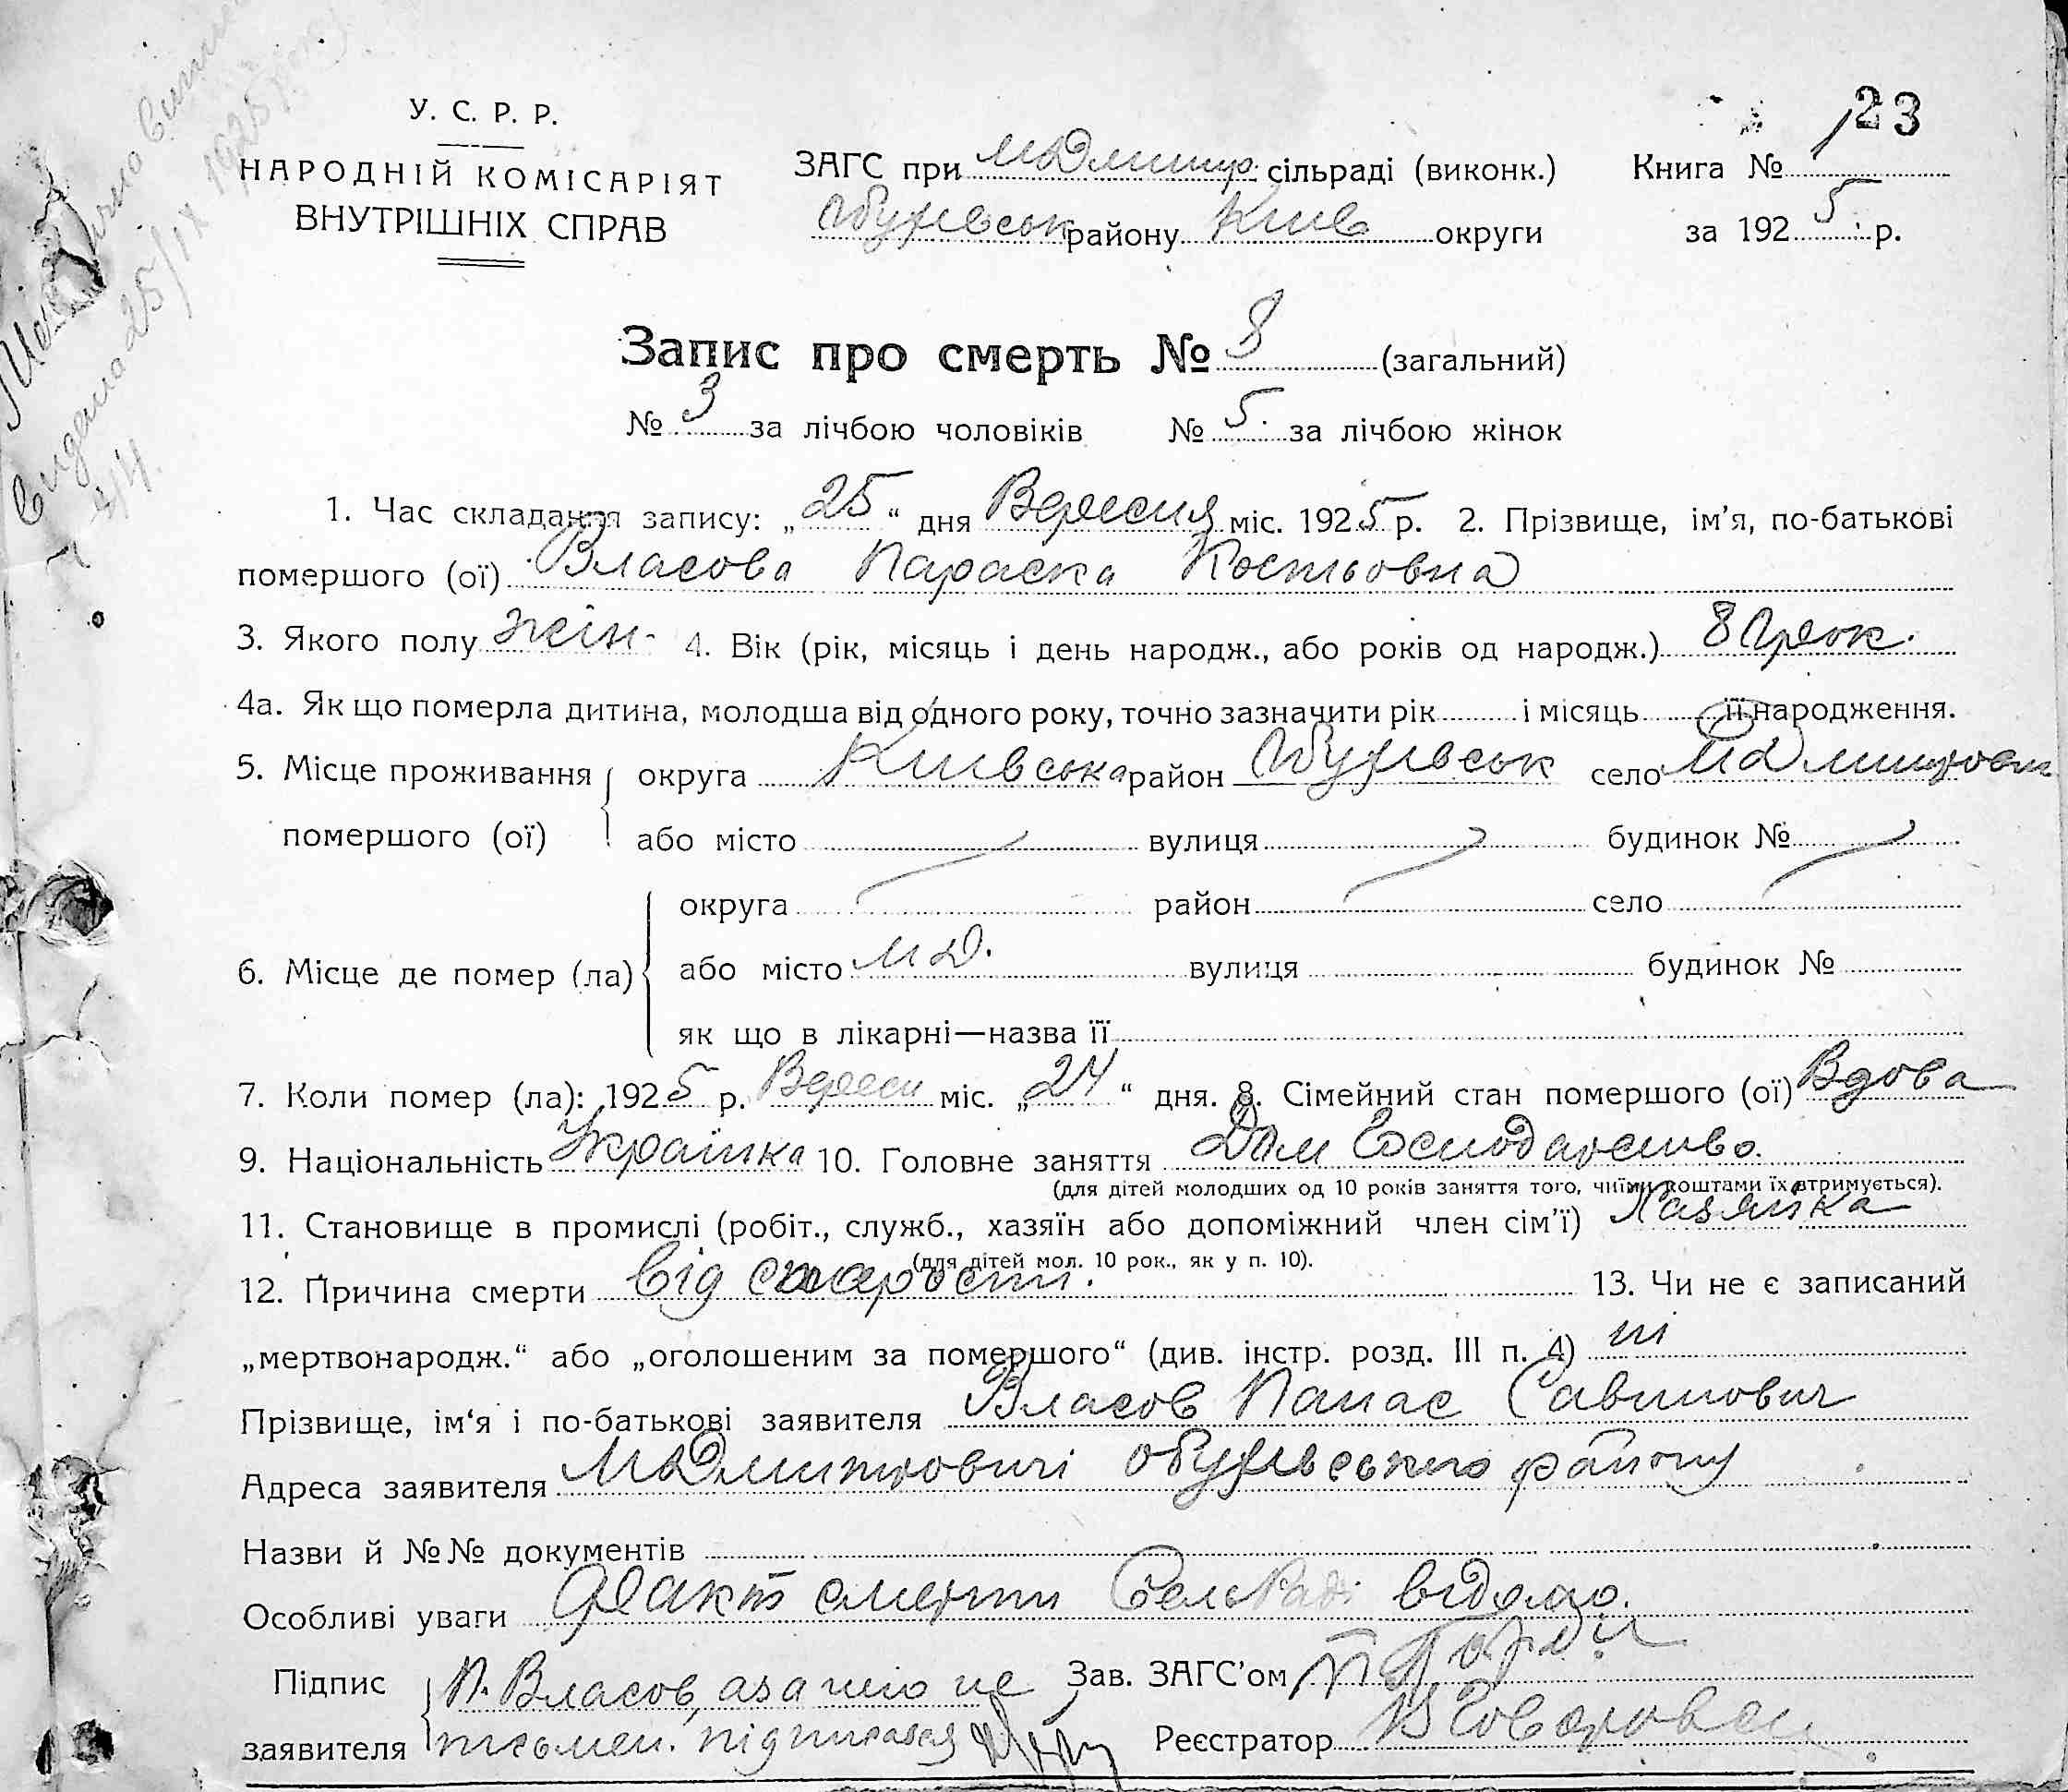 23
У. С. Р. Р.
НАРОДНІЙ КОМІСАРІЯТ
ВНУТРІШНІХ СПРАВ
ЗАГС при МДмитр. сільраді (виконк.)
Обухівськ району Київ округи
Книга №
за 1925 р.
Запис про смерть № 8 (загальний)
№ 3 за лічбою чоловіків № 5. за лічбою жінок
1. Час складання запису: „25“ дня Вересня міс. 1925 р. 2. Прізвище, ім'я, по-батькові
помершого (ої) Власова Параска Костьовна
3. Якого полу жін. 4. Вік (рік, місяць і день народж., або років од народж.) 80 рок.
4а. Як що померла дитина, молодша від одного року, точно зазначити рік і місяць її народження.
5. Місце проживання округа Київська район Обухівськ село МДмитров
помершого (ої) або місто вулиця будинок №
округа район село
6. Місце де помер (ла) або місто МД. вулиця будинок №
як що в лікарні—назва її
7. Коли помер (ла): 1925 р. Вересн міс. „24“ дня. 8. Сімейний стан помершого (ої) Вдова
9. Національність Українка 10. Головне заняття Дом Господарство.
(для дітей молодших од 10 років заняття того, чиїми коштами їх втримується).
11. Становище в промислі (робіт., служб., хазяїн або допоміжний член сім'ї) Хазяйка
(для дітей мол. 10 рок., як у п. 10).
12. Причина смерти від старости. 13. Чи не є записаний
„мертвонародж.“ або „оголошеним за помершого“ (див. інстр. розд. III п. 4) ні
Прізвище, ім'я і по-батькові заявителя Власов Панас Савинович
Адреса заявителя МДмитровичі обухівського району
Назви й №№ документів
Особливі уваги Факт смерти СельРаді відомо.
Підпис П. Власов, а за него не Зав. ЗАГС'ом
заявителя письмен. підписався Реєстратор